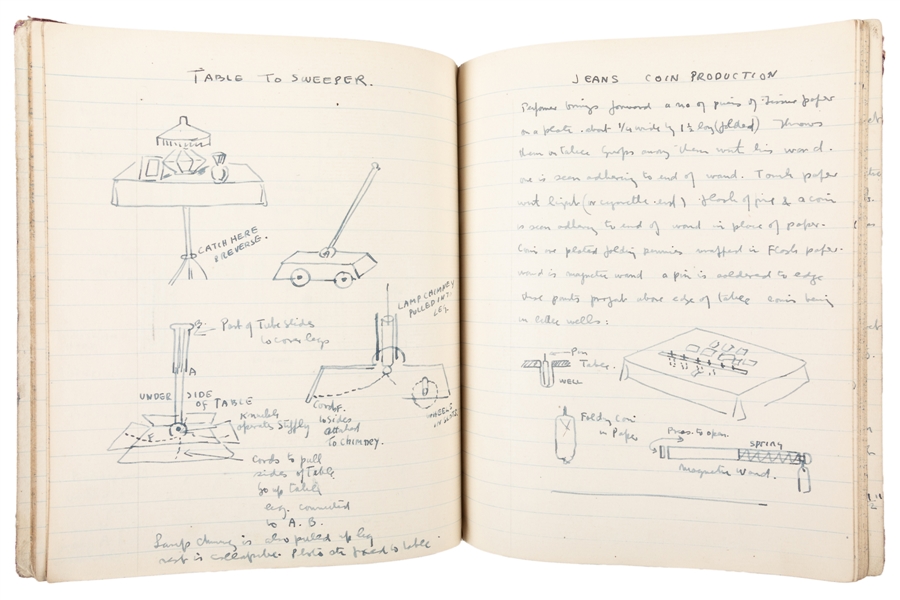 TABLE TO SWEEPER.
CATCH HERE
REVERSE.
B.
Part of Tube slides
to cover legs
A
UNDER SIDE
OF TABLE
Knuckle
operates stiffly
LAMP CHIMNEY
PULLED INTO
LEG
Cords
to sides
attached
TO CHIMNEY.
WHEELS
IN SLOTS
Cords to pull
sides of Table
so up table
leg. connected
to A. B.
Lamp chimney is also pulled up leg
rest is collapsible. Photo etc fixed to table.
JEANS COIN PRODUCTION
Performer brings forward a no of pieces of Tissue paper
on a plate. about 1/4 wide by 1 1/2 long (folded) Throws
them on table away them with his wand.
one is seen adhering to end of wand. Touch paper
with light (or cigarette-end) flash of fire & a coin
is seen adhering to end of wand in place of paper.
Coins are plated folding pennies wrapped in Flash paper.
wand is magnetic wand a pin is soldered to edge
these parts project above edge of table coins being
in little wells:
Pin
Table.
WELL
Folding Coin
in Paper
Press to open.
SPRING
Magnetic Wand.